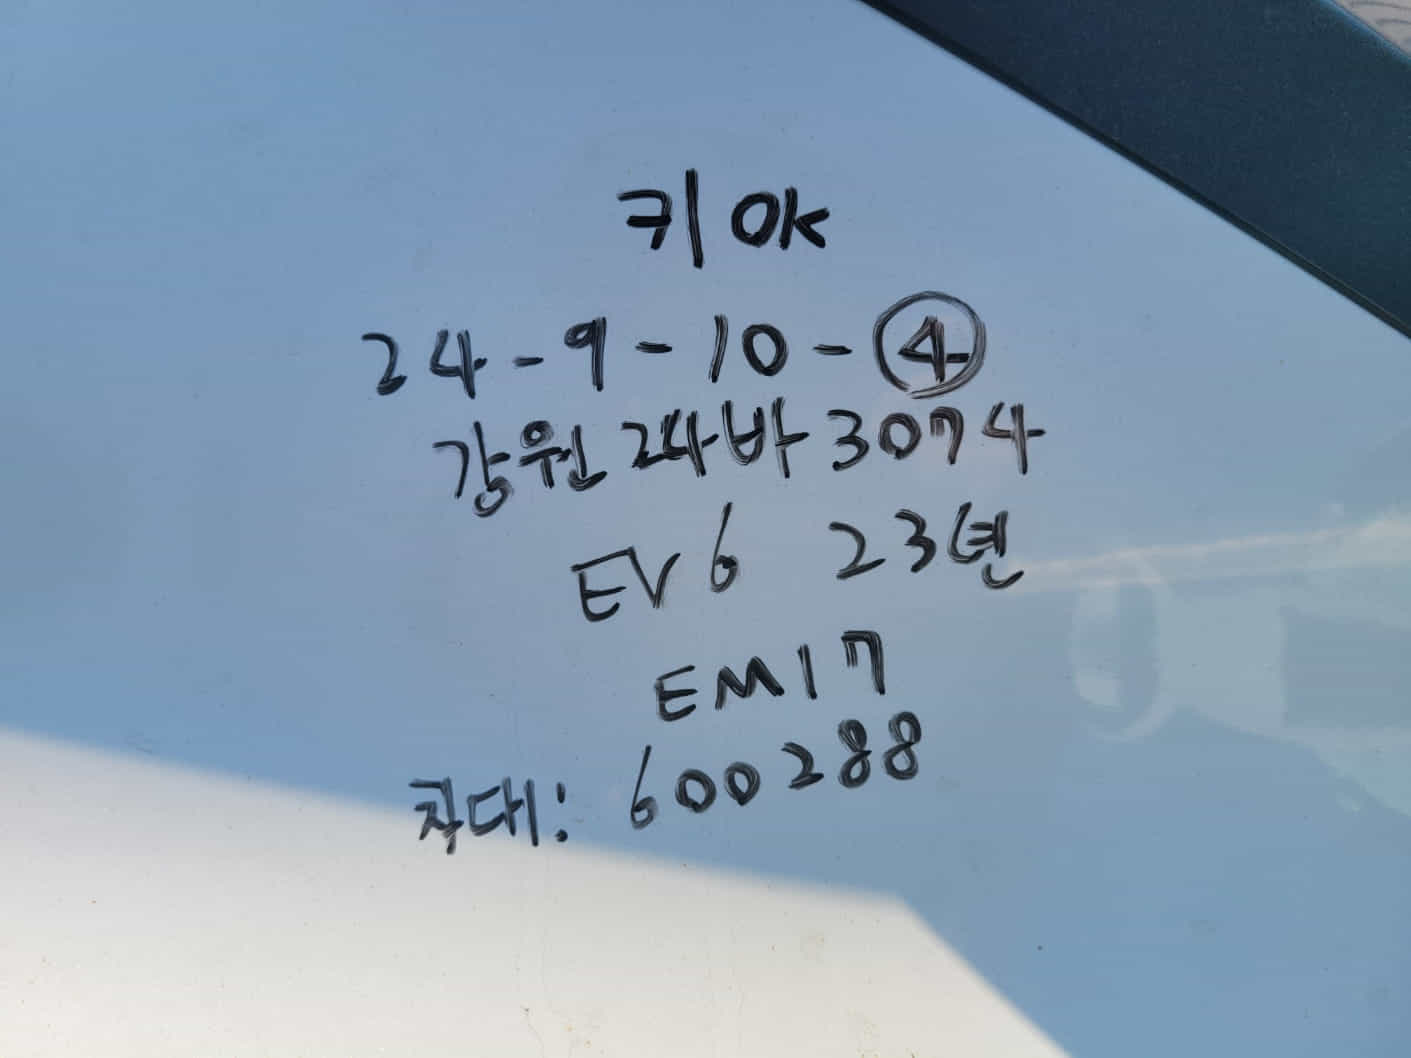 키 OK
24-9-10-④
강원24바3074
EV6 23년
EM17
차대: 600288